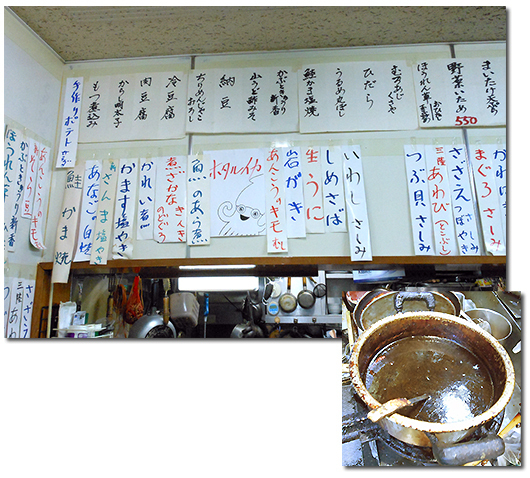 まいたけ天ぷら
野菜いため
550
ほうれん草
むろあじくさや
ひだら
うるめ丸ぼし
鮭かま塩焼
かぶときゅうり新香
山うど酢みそ
納豆
ちりめんじゃこおろし
冷豆腐
肉豆腐
からし明太子
もつ煮込み
手作りポテトサラダ
まぐろさしみ
さざえ
つぼやき
さしみ
三陸あわび
つぶ貝さしみ
いわしさしみ
しめさば
生うに
岩がき
あんこうのキモ
ホタルイカ
魚のあら煮
きんき
のどぐろ
かれい煮
かます塩やき
さんま塩やき
あなご白焼
鮭かま焼
かぶときゅうり新香
ほうれん草
さざえ
三陸